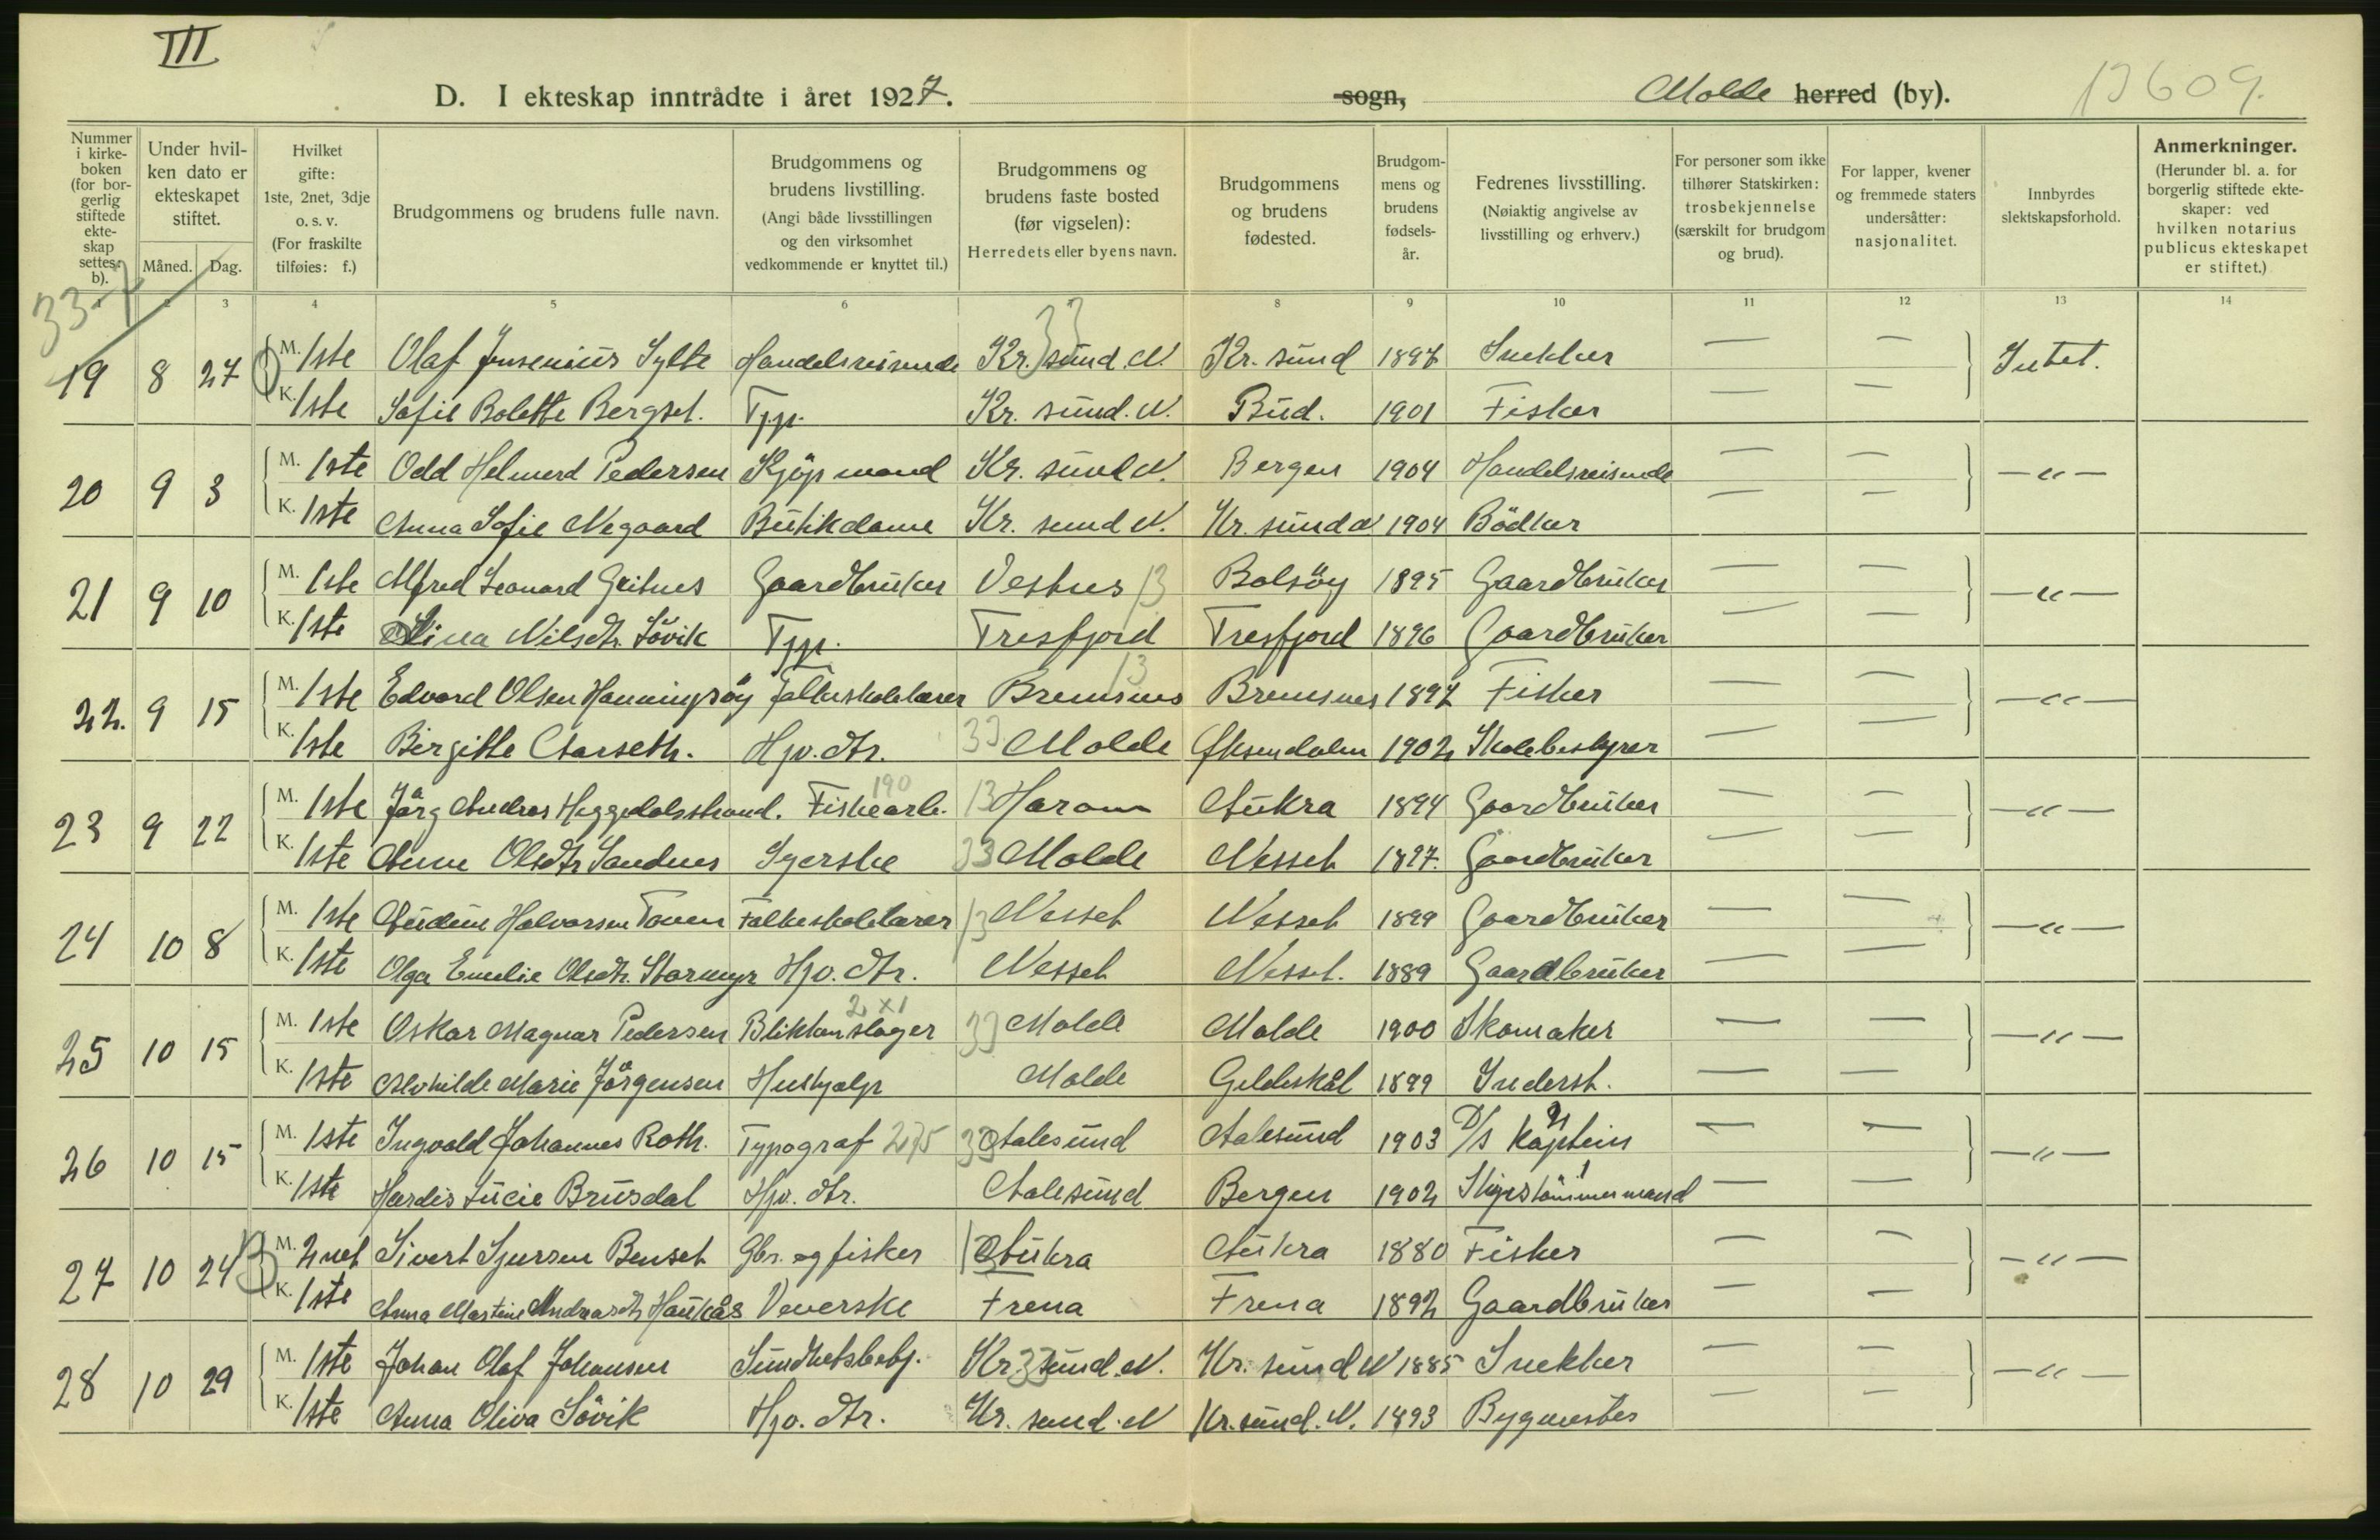 III
D. I ekteskap inntrådte i året 1927. sogn, Molde herred (by). 13609.
Nummer i kirkeboken (for borgerlig stiftede ekteskap settes: b).
Under hvilken dato er ekteskapet stiftet.
Måned. Dag.
Hvilket gifte: 1ste, 2net, 3dje o. s. v. (For fraskilte tilføies: f.)
Brudgommens og brudens fulle navn.
Brudgommens og brudens livstilling. (Angi både livsstillingen og den virksomhet vedkommende er knyttet til.)
Brudgommens og brudens faste bosted (før vigselen): Herredets eller byens navn.
Brudgommens og brudens fødested.
Brudgommens og brudens fødselsår.
Fedrenes livsstilling. (Nøiaktig angivelse av livsstilling og erhverv.)
For personer som ikke tilhører Statskirken: trosbekjennelse (særskilt for brudgom og brud).
For lapper, kvener og fremmede staters undersåtter: nasjonalitet.
Innbyrdes slektskapsforhold.
Anmerkninger. (Herunder bl. a. for borgerlig stiftede ekteskaper: ved hvilken notarius publicus ekteskapet er stiftet.)
1 2 3 4 5 6 8 9 10 11 12 13 14
33-7
33
19 8 27 M. 1ste Olaf Jensenius Sylte Handelsreisende Kr. sund. N. Kr. sund 1897 Snekker — — Intet.
K. 1ste Sofie Bolette Bergset. Tjp. Kr. sund. N. Bud. 1901 Fisker — —
20 9 3 M. 1ste Odd Helmerd Pedersen Kjöpmand Kr. sund N. Bergen 1904 Handelsreisende — — —"—
K. 1ste Anna Sofie Negaard Butikdame Kr. sund N. Kr. sund N 1904 Bödker — —
21 9 10 M. 1ste Alfred Leonard Geitnes Gaardbruker Vestnes 13 Bolsöy 1895 Gaardbruker — — —"—
K. 1ste Lina Nilsdtr. Sövik Tjp. Tresfjord Tresfjord 1896 Gaardbruker — —
22. 9 15 M. 1ste Edvard Olsen Hanningsöy Folkeskolelærer Bremsnes 13 Bremsnes 1897 Fisker — — —"—
K. 1ste Birgitte Aarseth. Hjv. dtr. 33 Molde Øksendalen 1902 Skolebestyrer — —
23 9 22 M. 1ste Jörg Andreas Heggdalsstrand. Fiskearb. 190 13 Haram Aukra 1894 Gaardbruker — — —"—
K. 1ste Anne Olsdtr Sandnes Syerske 33 Molde Nesset 1897. Gaardbruker — —
24 10 8 M. 1ste Audun Halvorsen Toven Folkeskolelærer 13 Nesset Nesset 1899 Gaardbruker — — —"—
K. 1ste Olga Emelie Olsdtr. Stormyr Hjv. dtr. Nesset Nesset. 1889 Gaardbruker — —
25 10 15 M. 1ste Oskar Magnar Pedersen Blikkenslager 2x1 33 Molde Molde 1900 Skomaker — — —"—
K. 1ste Alvhilde Marie Jörgensen Hushjælp Molde Gildeskål 1899 Inderst. — —
26 10 15 M. 1ste Ingvald Johannes Roth. Typograf 275 33 Aalesund Aalesund 1903 D/s kaptein — — —"—
K. 1ste Hardis Lucie Brusdal Hjv. dtr. Aalesund Bergen 1902 Skipstömmermand — —
27 10 24 M. 2net Sivert Sjursen Benset Gbr. og fisker 13 Aukra Aukra 1880 Fisker — — —"—
K. 1ste Anna Martine Andreasdtr Haukås Veverske Fræna Fræna 1892 Gaardbruker — —
28 10 29 M. 1ste Johan Olaf Johansen Sundhetsbetj. Kr. 33 sund. N. Kr. sund N 1885 Snekker — — —"—
K. 1ste Anna Oliva Sövik Hjv. dtr. Kr. sund. N Kr. sund. N. 1893 Bygmester — —